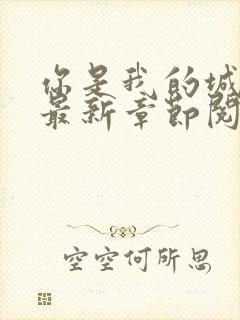 你是我的城
最新章节阅
空空何所思